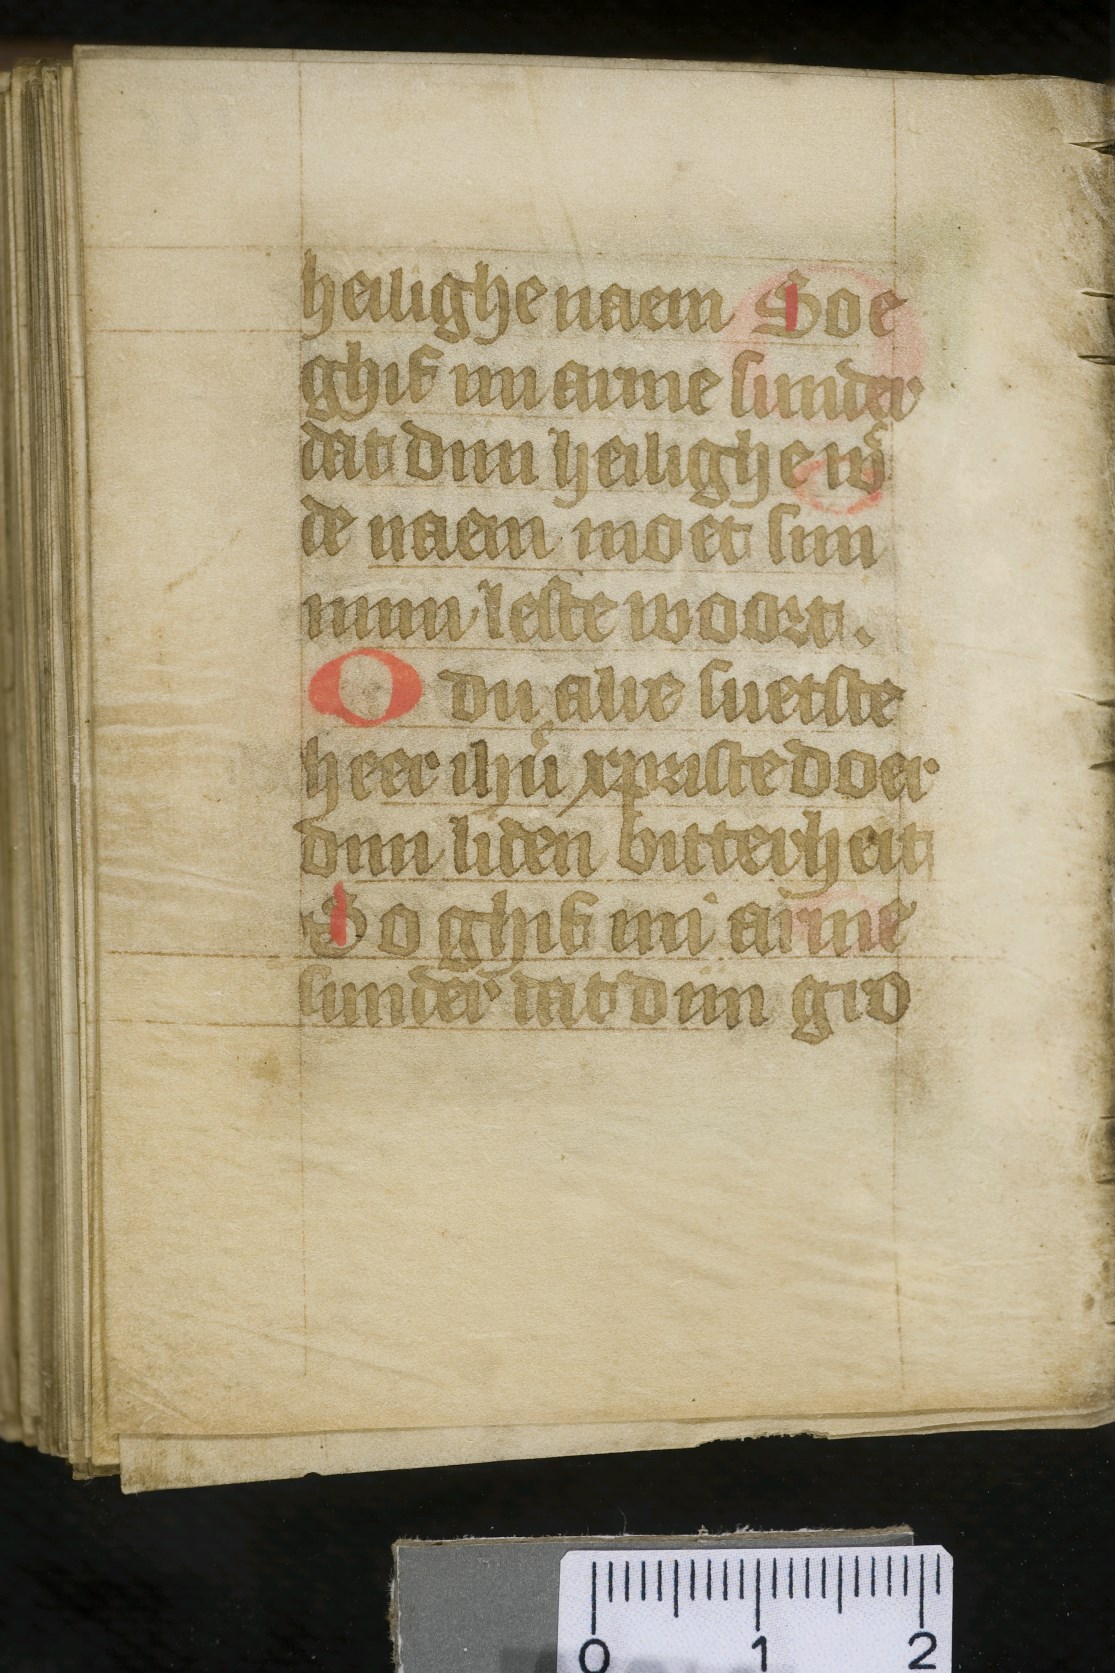 heilighe naem Soe
ghif mi arme sunder
dat dijn heilighe w̄
de naem moet sijn
mijn leste woort.
O du alre suetste
heer ihū xpriste doer
dijn liden bitterheit
So ghif mi arme
sunder dat dijn gro
0 1 2